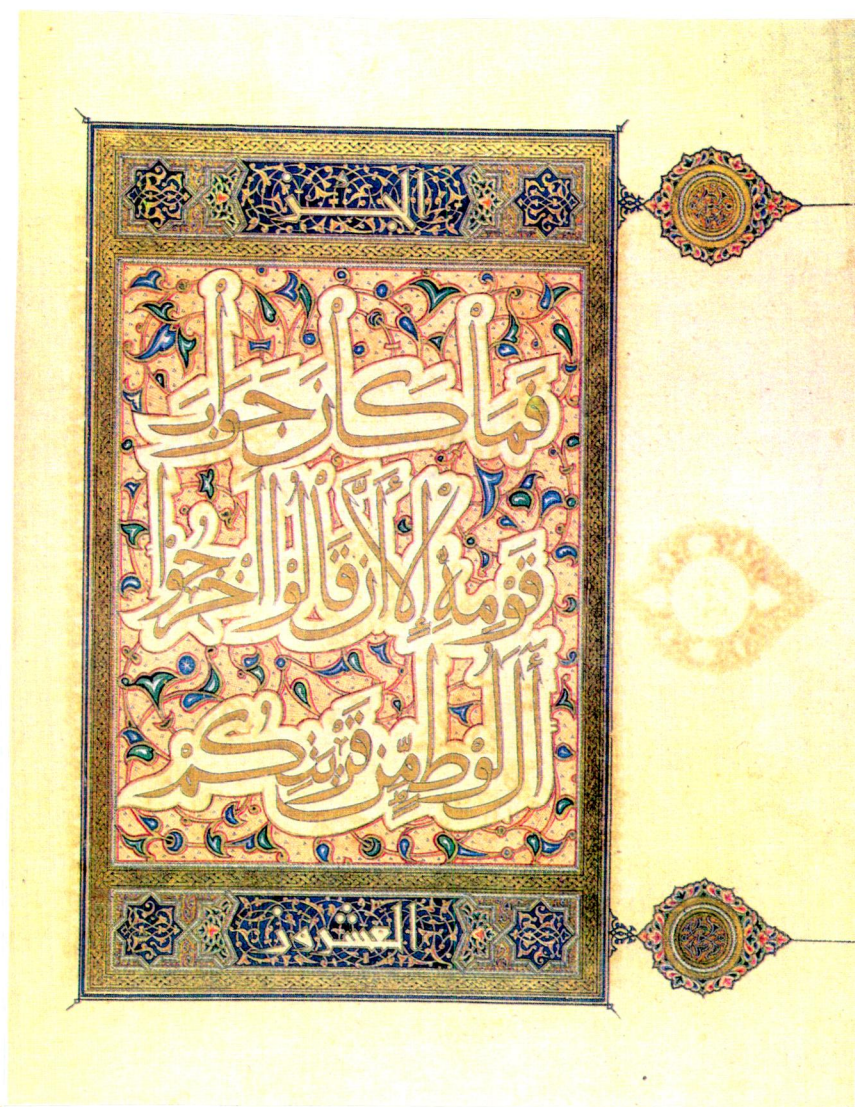 الجزء
فَمَا كَانَ جَوَابَ
قَوْمِهِ إِلَّا أَنْ قَالُوا أَخْرِجُوا
أَلَ لُوْطٍ مِّنْ قَرْيَتِكُمْ
العشرون